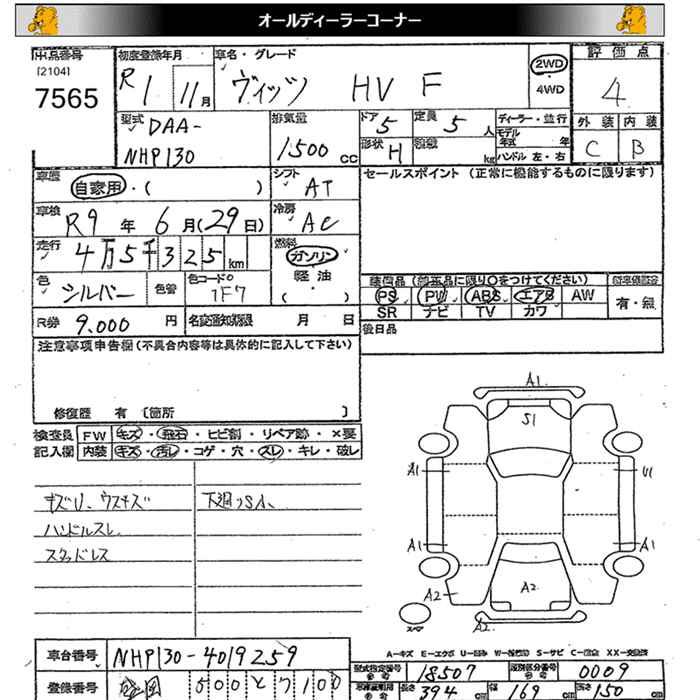 オールディーラーコーナー
出品番号
[2104]
7565
初度登録年月
R1 11月
車名・グレード
ヴィッツ HV F
2WD
4WD
評価点
4
外装 内装
C B
型式
DAA-
NHP130
排気量
1500 cc
ドア 5
形状 H
定員 5 人
積載 kg
ディーラー・並行
モデル年式 年
ハンドル 左・右
車歴
自家用・( )
シフト
AT
セールスポイント (正常に機能するものに限ります)
車検
R9 年 6月(29日)
冷房
AC
走行
4万5千325km
燃料
ガソリン
軽油
( )
色
シルバー
色替
色コードNo
1F7
装備品(純正品に限り○をつけてください)
PS PW ABS エアB AW
SR ナビ TV カワ
有・無
R券 9.000 円
名変通知期限 月 日
後日品
注意事項申告欄(不具合内容等は具体的に記入して下さい)
修復歴 有 [箇所 ]
検査員
記入欄
FW キズ・飛石・ヒビ割・リペア跡・×要
内装 キズ・汚レ・コゲ・穴・スレ・キレ・破レ
キズU、ウスキズ
ハンドルスレ
スタッドレス
下廻りSA、
A1
S1
A1
U1
A1
A1
A2
A2
A2
スペア
A-キズ E-エクボ U-凹み W-補修跡 S-サビ C-腐食 XX-交換済
車台番号 NHP130-4019259
型式指定番号 18507
類別区分番号 0009
登録番号
500と7100
長さ 394 cm 幅 169 cm 高さ 150 cm